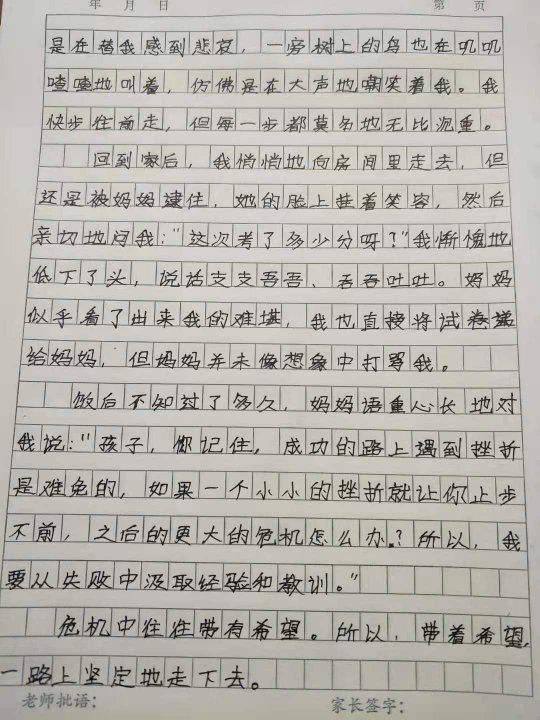 年 月 日 第 页
是在替我感到悲哀，一旁树上的鸟也在叽叽
喳喳地叫着，仿佛是在大声地嘲笑着我。我
快步往前走，但每一步都莫名地无比沉重。
回到家后，我悄悄地向房间里走去，但
还是被妈妈逮住，她的脸上挂着笑容，然后
亲切地问我："这次考了多少分呀？"我惭愧地
低下了头，说话支支吾吾、吞吞吐吐。妈妈
似乎看了出来我的难堪，我也直接将试卷递
给妈妈，但妈妈并未像想象中打骂我。
饭后不知过了多久，妈妈语重心长地对
我说："孩子，你记住，成功的路上遇到挫折
是难免的，如果一个小小的挫折就让你止步
不前，之后的更大的危机怎么办？所以，我
要从失败中汲取经验和教训。"
危机中往往带有希望。所以，带着希望，
一路上坚定地走下去。
老师批语： 家长签字：